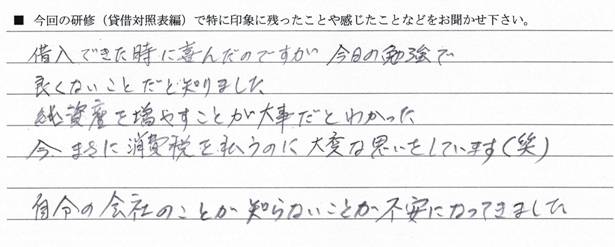 ■ 今回の研修（貸借対照表編）で特に印象に残ったことや感じたことなどをお聞かせ下さい。
借入できた時に喜んだのですが 今日の勉強で
良くないことだと知りました
純資産を増やすことが大事だとわかった
今 まさに消費税を払うのに大変な思いをしています(笑)
自分の会社のことが知らないことが不安になってきました